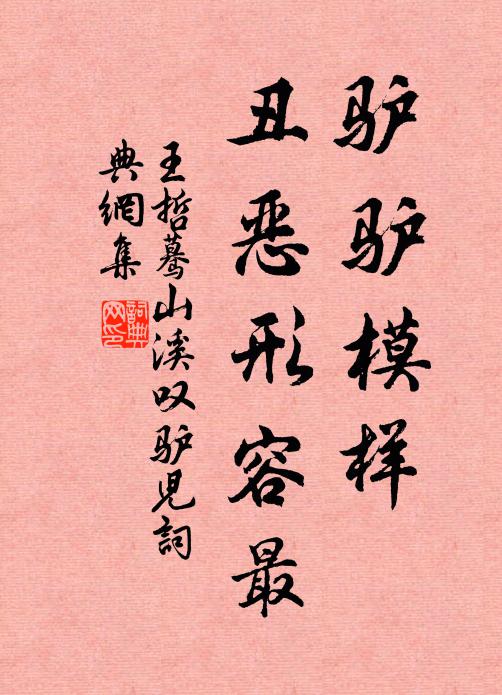 驴驴模样
丑恶形容最
王哲蓦山溪叹驴儿詞
典網集
詞典
网印